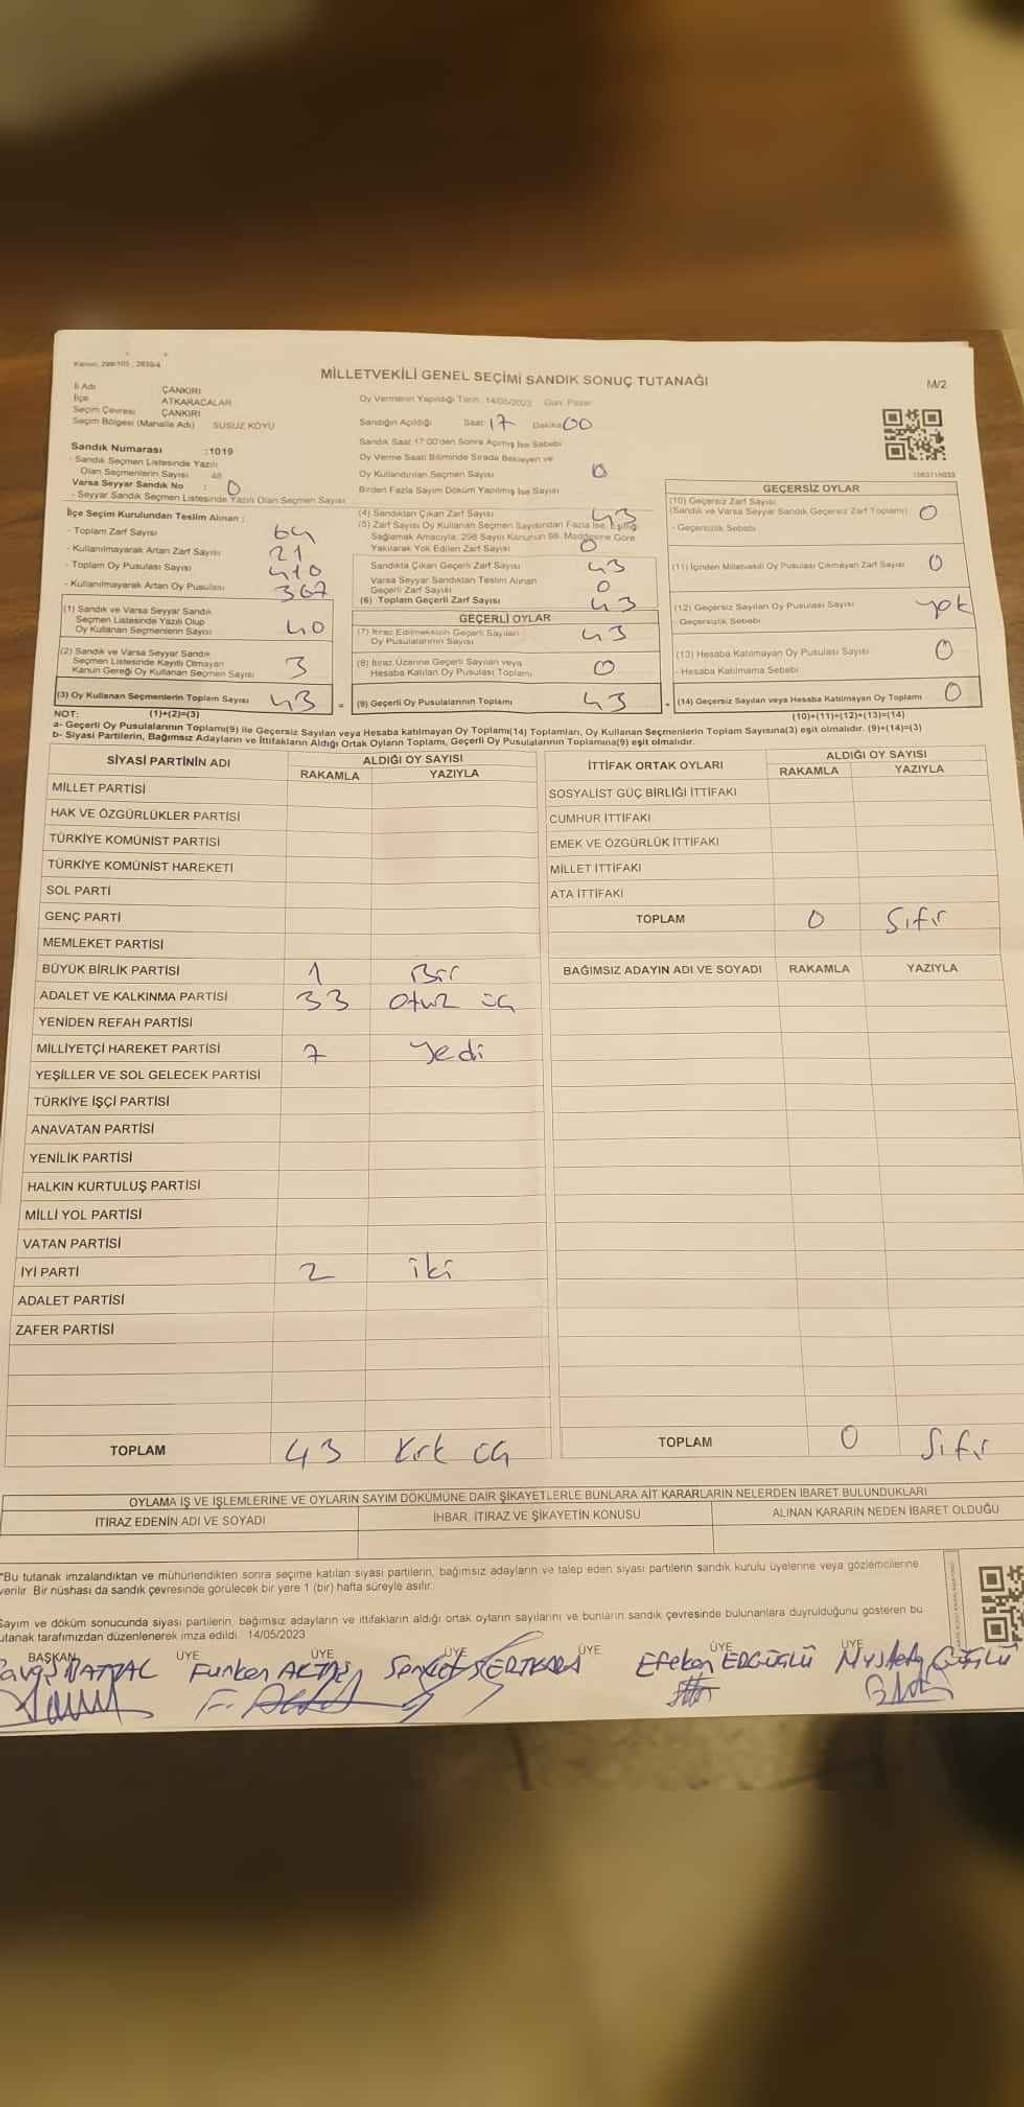 Kanun: 298/105 ; 2839/4
MİLLETVEKİLİ GENEL SEÇİMİ SANDIK SONUÇ TUTANAĞI
M/2
İl Adı ÇANKIRI
İlçe ATKARACALAR
Seçim Çevresi ÇANKIRI
Seçim Bölgesi (Mahalle Adı) SUSUZ KÖYÜ
Oy Vermenin Yapıldığı Tarih: 14/05/2023 Gün: Pazar
Sandığın Açıldığı Saat: 17 Dakika: 00
Sandık Saat 17:00'den Sonra Açılmış İse Sebebi
Sandık Numarası : 1019
- Sandık Seçmen Listesinde Yazılı
Olan Seçmenlerin Sayısı
Varsa Seyyar Sandık No : 0
- Seyyar Sandık Seçmen Listesinde Yazılı Olan Seçmen Sayısı
Oy Verme Saati Bitiminde Sırada Bekleyen ve
Oy Kullandırılan Seçmen Sayısı 0
Birden Fazla Sayım Döküm Yapılmış İse Sayısı
İlçe Seçim Kurulundan Teslim Alınan :
- Toplam Zarf Sayısı 64
- Kullanılmayarak Artan Zarf Sayısı 21
- Toplam Oy Pusulası Sayısı 410
- Kullanılmayarak Artan Oy Pusulası 367
(1) Sandık ve Varsa Seyyar Sandık
Seçmen Listesinde Yazılı Olup
Oy Kullanan Seçmenlerin Sayısı 40
(2) Sandık ve Varsa Seyyar Sandık
Seçmen Listesinde Kayıtlı Olmayan
Kanun Gereği Oy Kullanan Seçmen Sayısı 3
(3) Oy Kullanan Seçmenlerin Toplam Sayısı 43 =
(4) Sandıktan Çıkan Zarf Sayısı 43
(5) Zarf Sayısı Oy Kullanan Seçmen Sayısından Fazla İse, Eşitliği
Sağlamak Amacıyla; 298 Sayılı Kanunun 98. Maddesine Göre
Yakılarak Yok Edilen Zarf Sayısı 0
Sandıkta Çıkan Geçerli Zarf Sayısı 43
Varsa Seyyar Sandıktan Teslim Alınan
Geçerli Zarf Sayısı 0
(6) Toplam Geçerli Zarf Sayısı 43
GEÇERLİ OYLAR
(7) İtiraz Edilmeksizin Geçerli Sayılan
Oy Pusulalarının Sayısı 43
(8) İtiraz Üzerine Geçerli Sayılan veya
Hesaba Katılan Oy Pusulası Toplamı 0
(9) Geçerli Oy Pusulalarının Toplamı 43 +
GEÇERSİZ OYLAR
(10) Geçersiz Zarf Sayısı
(Sandık ve Varsa Seyyar Sandık Geçersiz Zarf Toplamı) 0
- Geçersizlik Sebebi
(11) İçinden Milletvekili Oy Pusulası Çıkmayan Zarf Sayısı 0
(12) Geçersiz Sayılan Oy Pusulası Sayısı yok
Geçersizlik Sebebi
(13) Hesaba Katılmayan Oy Pusulası Sayısı 0
- Hesaba Katılmama Sebebi
(14) Geçersiz Sayılan veya Hesaba Katılmayan Oy Toplamı 0
NOT: (1)+(2)=(3) (10)+(11)+(12)+(13)=(14)
a- Geçerli Oy Pusulalarının Toplamı(9) ile Geçersiz Sayılan veya Hesaba katılmayan Oy Toplamı(14) Toplamları, Oy Kullanan Seçmenlerin Toplam Sayısına(3) eşit olmalıdır. (9)+(14)=(3)
b- Siyasi Partilerin, Bağımsız Adayların ve İttifakların Aldığı Ortak Oyların Toplamı, Geçerli Oy Pusulalarının Toplamına(9) eşit olmalıdır.
SİYASİ PARTİNİN ADI ALDIĞI OY SAYISI
RAKAMLA YAZIYLA
MİLLET PARTİSİ
HAK VE ÖZGÜRLÜKLER PARTİSİ
TÜRKİYE KOMÜNİST PARTİSİ
TÜRKİYE KOMÜNİST HAREKETİ
SOL PARTİ
GENÇ PARTİ
MEMLEKET PARTİSİ
BÜYÜK BİRLİK PARTİSİ 1 Bir
ADALET VE KALKINMA PARTİSİ 33 Otuz üç
YENİDEN REFAH PARTİSİ
MİLLİYETÇİ HAREKET PARTİSİ 7 Yedi
YEŞİLLER VE SOL GELECEK PARTİSİ
TÜRKİYE İŞÇİ PARTİSİ
ANAVATAN PARTİSİ
YENİLİK PARTİSİ
HALKIN KURTULUŞ PARTİSİ
MİLLİ YOL PARTİSİ
VATAN PARTİSİ
İYİ PARTİ 2 iki
ADALET PARTİSİ
ZAFER PARTİSİ
TOPLAM 43 Kırk üç
İTTİFAK ORTAK OYLARI ALDIĞI OY SAYISI
RAKAMLA YAZIYLA
SOSYALİST GÜÇ BİRLİĞİ İTTİFAKI
CUMHUR İTTİFAKI
EMEK VE ÖZGÜRLÜK İTTİFAKI
MİLLET İTTİFAKI
ATA İTTİFAKI
TOPLAM 0 Sıfır
BAĞIMSIZ ADAYIN ADI VE SOYADI RAKAMLA YAZIYLA
TOPLAM 0 Sıfır
OYLAMA İŞ VE İŞLEMLERİNE VE OYLARIN SAYIM DÖKÜMÜNE DAİR ŞİKAYETLERLE BUNLARA AİT KARARLARIN NELERDEN İBARET BULUNDUKLARI
İTİRAZ EDENİN ADI VE SOYADI İHBAR, İTİRAZ VE ŞİKAYETİN KONUSU ALINAN KARARIN NEDEN İBARET OLDUĞU
*Bu tutanak imzalandıktan ve mühürlendikten sonra seçime katılan siyasi partilerin, bağımsız adayların ve talep eden siyasi partilerin sandık kurulu üyelerine veya gözlemcilerine
verilir. Bir nüshası da sandık çevresinde görülecek bir yere 1 (bir) hafta süreyle asılır.
Sayım ve döküm sonucunda siyasi partilerin, bağımsız adayların ve ittifakların aldığı ortak oyların sayılarını ve bunların sandık çevresinde bulunanlara duyrulduğunu gösteren bu
tutanak tarafımızdan düzenlenerek imza edildi. 14/05/2023
BAŞKAN ÜYE ÜYE ÜYE ÜYE ÜYE ÜYE
Furkan Efekan ERGÜÇLÜ